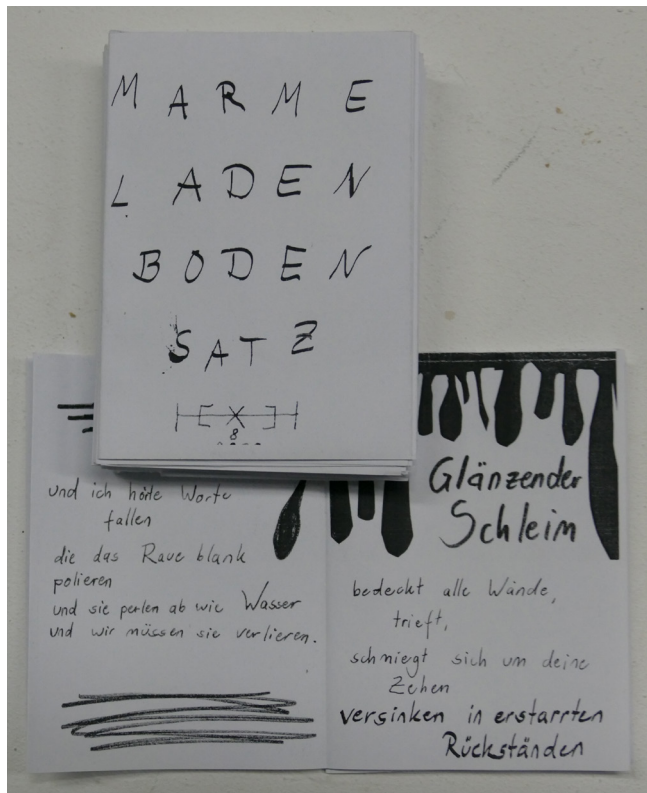 MARME
LADEN
BODEN
SATZ
8
und ich hörte Worte
fallen
die das Raue blank
polieren
und sie perlen ab wie Wasser
und wir müssen sie verlieren.
Glänzender
Schleim
bedeckt alle Wände,
trieft,
schmiegt sich um deine
Zehen
versinken in erstarrten
Rückständen